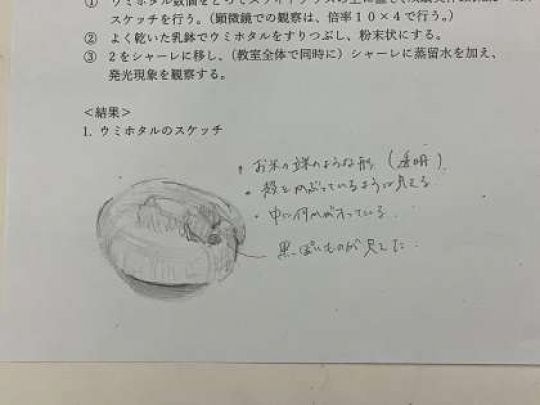 ① ウミホタル数個をとってスライドグラスの上に置き、
スケッチを行う。（顕微鏡での観察は、倍率１０×４で行う。）
② よく乾いた乳鉢でウミホタルをすりつぶし、粉末状にする。
③ ２をシャーレに移し、（教室全体で同時に）シャーレに蒸留水を加え、
発光現象を観察する。
＜結果＞
1. ウミホタルのスケッチ
・お米の様のような形（透明）
・殻をかぶっているように見える
・中に何かが入っている
黒っぽいものが見えた